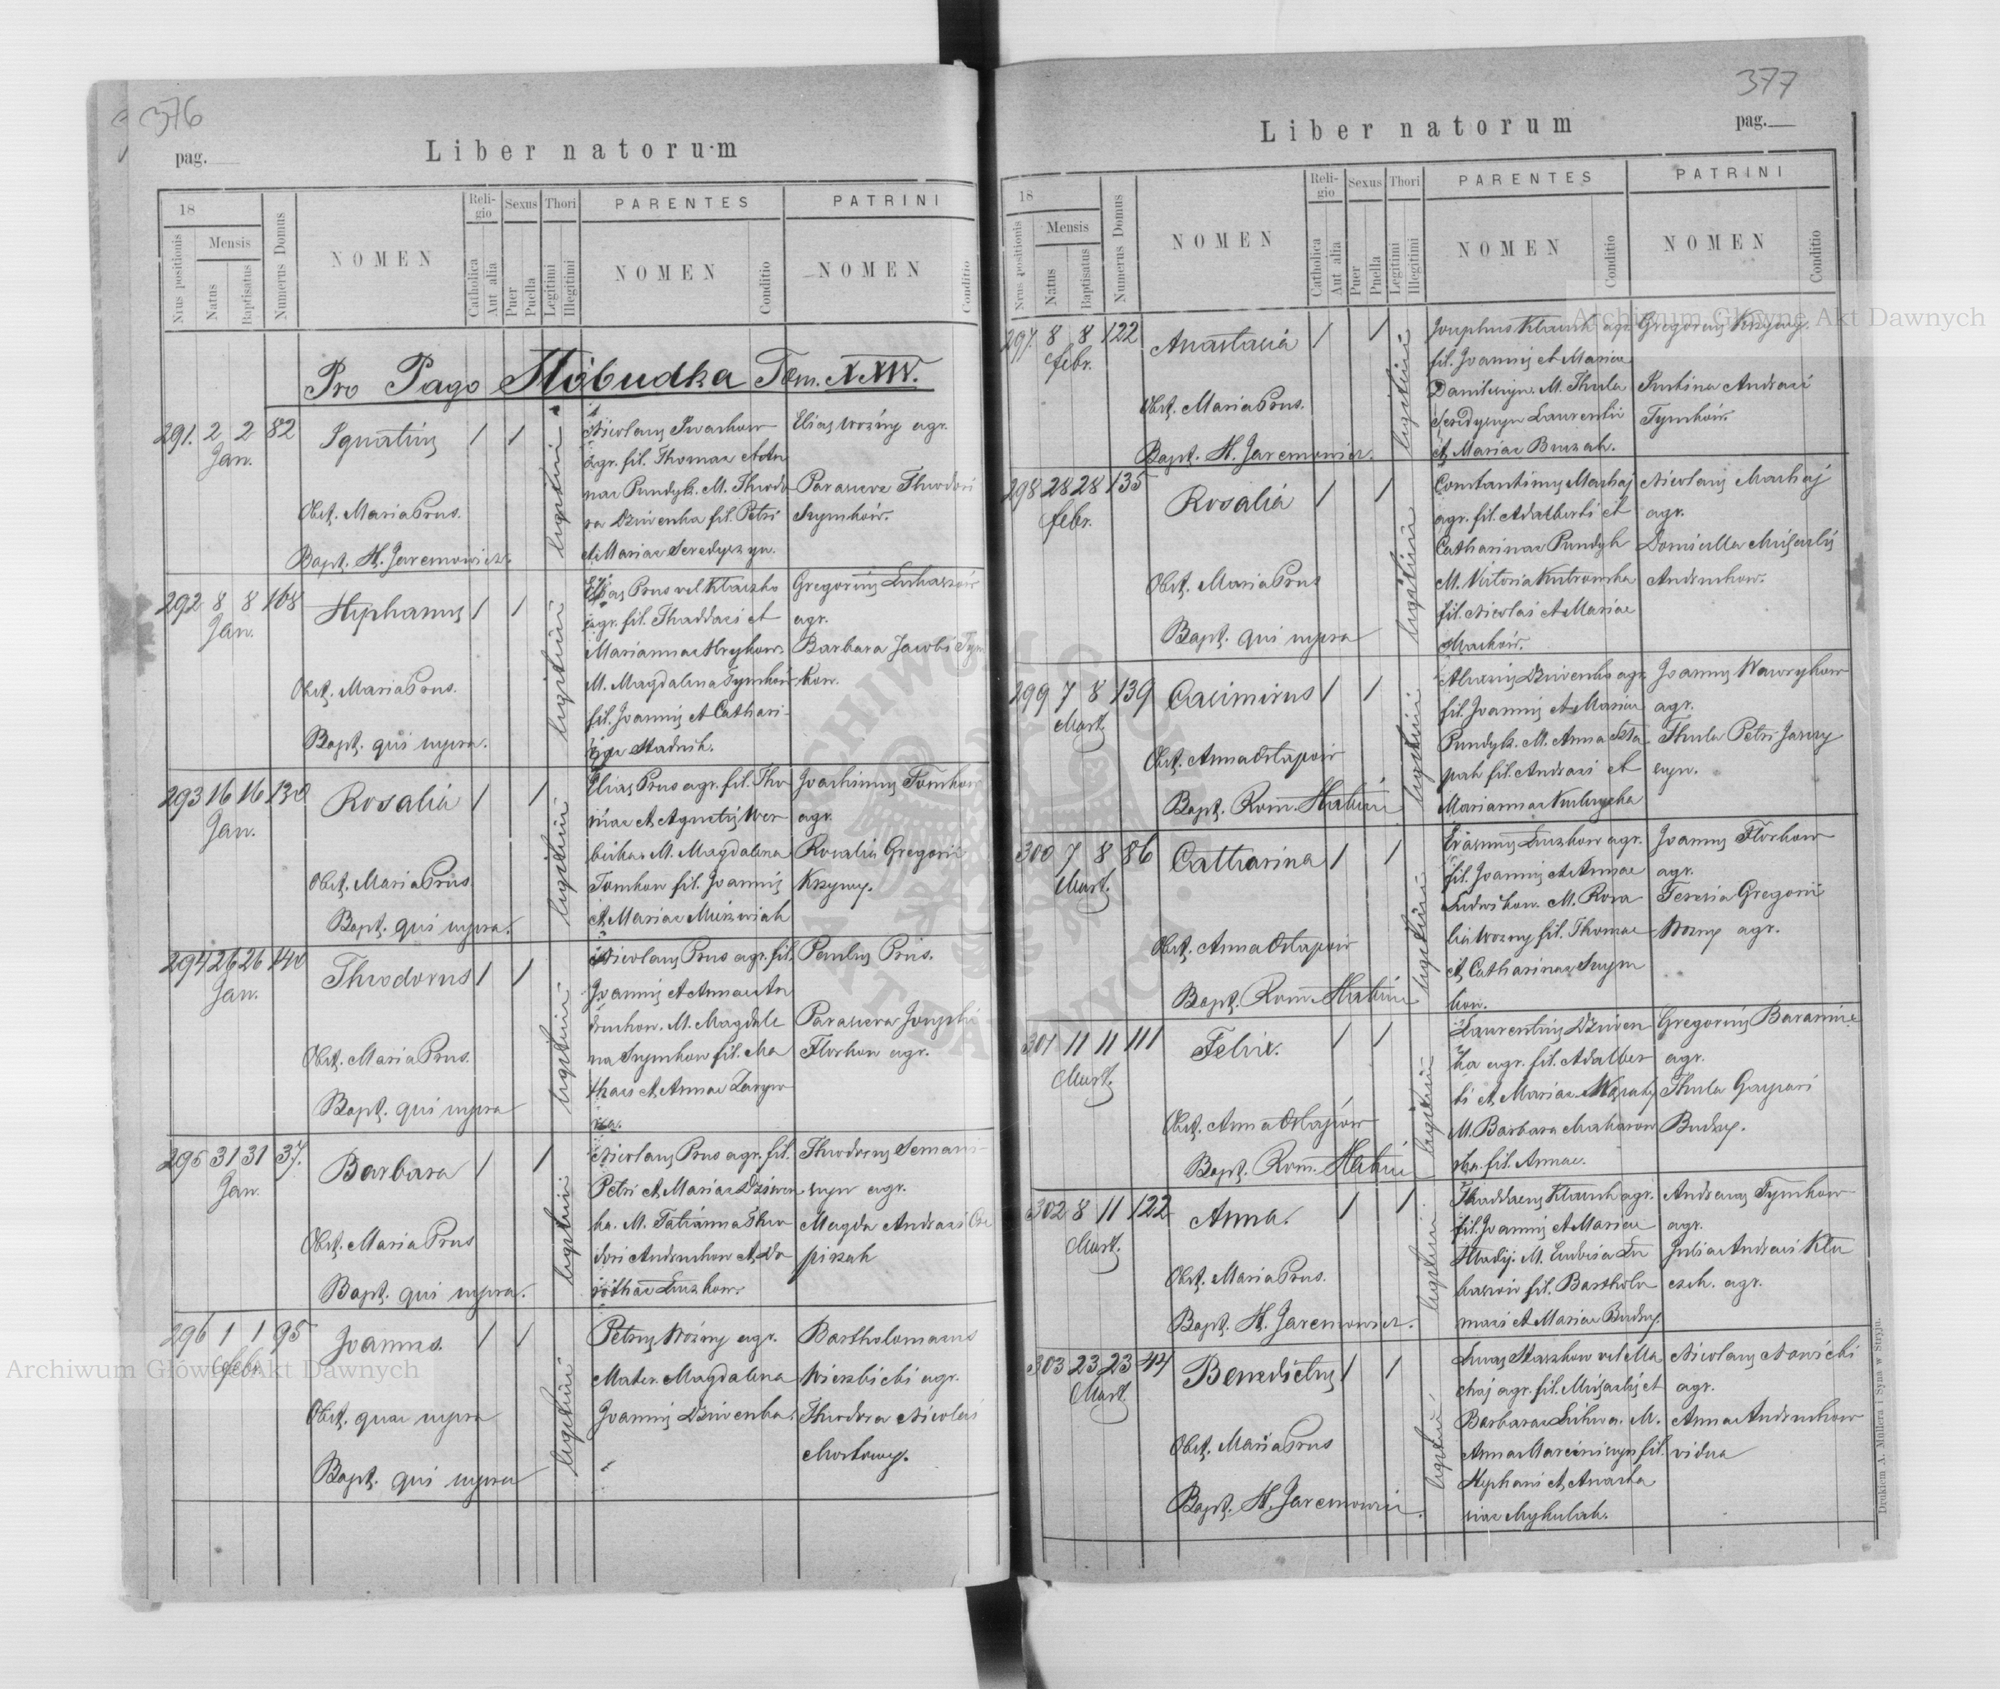 376
pag.
Liber natorum
18
Nrus positionis
Mensis
Natus
Baptisatus
Numerus Domus
NOMEN
Religio
Catholica
Aut alia
Sexus
Puer
Puella
Thori
Legitimi
Illegitimi
PARENTES
NOMEN
Conditio
PATRINI
NOMEN
Conditio
Pro Pago Słobudka Tom. XXIV.
291. 2 2 82 Ignatius / /
Jan.
Obst. Maria Prus.
Bapt. H. Jaremowicz.
legitimi
Nicolaus Iwachow
agr. fil. Thomae et An
nae Pundyk. M. Theodo
ra Dziwenka fil. Petri
et Mariae Seredyszyn.
Elias Woźny agr.
Parasceve Theodori
Szymków.
292 8 8 168 Stephanus / /
Jan.
Obst. Maria Prus.
Bapt. qui supra.
legitimi
Elias Prus vel Klaczko
agr. fil. Thaddaei et
Mariannae Hrykow.
M. Magdalena Tymków
fil. Joannis et Cathari
nae Stadnik.
Gregorius Lukaszów
agr.
Barbara Jacobi Tym
kow.
293 16 16 130 Rosalia / /
Jan.
Obst. Maria Prus
Bapt. qui supra.
legitimi
Elias Prus agr. fil. Tho
mae et Agnetis Wer
bicka. M. Magdalena
Tomkow fil. Joannis
et Mariae
Joachimus Tomkow
agr.
Rosalia Gregorii
Krzywy.
294 26 26 140 Theodorus / /
Jan.
Obst. Maria Prus.
Bapt. qui supra
legitimi
Nicolaus Prus agr. fil.
Joannis et Annae An
druchow. M. Magdale
na Szymkow fil. Ma
thaei et Annae
Paulus Prus.
Parascera Josephi
Florkow agr.
295 31 31 37. Barbara / /
Jan.
Obst. Maria Prus
Bapt. qui supra.
legitimi
Nicolaus Prus agr. fil.
Petri et Mariae Dziwen
ka. M. Tatianna Theo
dori Andruchow et Do
rothae Luzkow.
Theodorus Semani
szyn agr.
Magda Andreae Cze
piszak
296 1 1 95 Joannes. / /
febr.
Obst. quae supra
Bapt. qui supra
legitimi
Petrus Woźny agr.
Mater. Magdalena
Joannis Dziwenka.
Bartholomaeus
Wierzbicki agr.
Theodora Nicolai
Mostowy.
377
pag.
Liber natorum
18
Nrus positionis
Mensis
Natus
Baptisatus
Numerus Domus
NOMEN
Religio
Catholica
Aut alia
Sexus
Puer
Puella
Thori
Legitimi
Illegitimi
PARENTES
NOMEN
Conditio
PATRINI
NOMEN
Conditio
297. 8 8 122 Anastasia / /
febr.
Obst. Maria Prus.
Bapt. H. Jaremowicz.
legitimi
Josephus agr.
fil. Joannis et Mariae
Daniliszyn. M. Thecla
Seredyszyn Laurentii
et Mariae Burzak.
Gregorius Krzywy.
Justina Andreae
Tymków.
298 28 28 135 Rosalia / /
febr.
Obst. Maria Prus
Bapt. qui supra
legitimi
Constantinus Machaj
agr. fil. Adalberti et
Catharinae Pundyk
M. Victoria Kutrowska
fil. Nicolai et Mariae
Maćków.
Nicolaus Machaj
agr.
Domicella Michaelis
Andruchow.
299 7 8 139 Casimirus / /
Mart.
Obst. Anna Ostapów
Bapt. Rom.
legitimi
Alexius Dziwenka agr.
fil. Joannis et Mariae
Pundyk. M. Anna Szta
pak fil. Andreae et
Mariannae
Joannes Wawrykow
agr.
Thecla Petri
szyn.
300 7 8 86 Catharina / /
Mart.
Obst. Anna Ostapów
Bapt. Rom.
legitimi
Erasmus Luzkow agr.
fil. Joannis et Annae
Ludwikow. M. Rosa
lia Woźny fil. Thomae
et Catharinae Szym
kow.
Joannes Florkow
agr.
Teresia Gregorii
Wozny agr.
301 11 11 111 Felix. / /
Mart.
Obst. Anna Ostapów
Bapt. Rom.
legitimi
Laurentius Dziwen
ka agr. fil. Adalber
ti et Mariae
M. Barbara Makarow
ska fil. Annae.
Gregorius
agr.
Thecla Gaspari
Budzy.
302 8 11 122 Anna. / /
Mart.
Obst. Maria Prus.
Bapt. H. Jaremowicz.
legitimi
Thaddaeus agr.
fil. Joannis et Mariae
M. Ludvisa Lu
kaszów fil. Bartholo
maei et Mariae Budzy.
Andreas Tymkow
agr.
Julia Andreae
agr.
303 23 23 44 Benedictus / /
Mart.
Obst. Maria Prus
Bapt. H. Jaremowicz.
legitimi
Lucas Staszkow vel Ma
chaj agr. fil. Michaelis et
Barbarae M.
Anna Marciniszyn fil.
Stephani et Anasta
siae Mykulak.
Nicolaus Nowicki
agr.
Anna Andruchow
vidua
Drukiem A. Müllera i Syna w Stryju.
Archiwum Główne Akt Dawnych
Archiwum Główne Akt Dawnych
ARCHIWUM GŁÓWNE AKT DAWNYCH